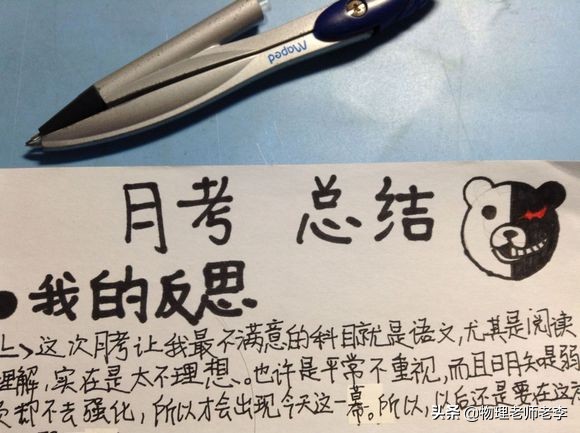 Maped
月考 总结
●我的反思
上>这次月考让我最不满意的科目就是语文,尤其是阅读
理解,实在是太不理想、。也许是平常不重视,而且明知是弱
却不去强化,所以才会出现今天这一幕。所以,以后还是要在这
头条 @物理老师老李